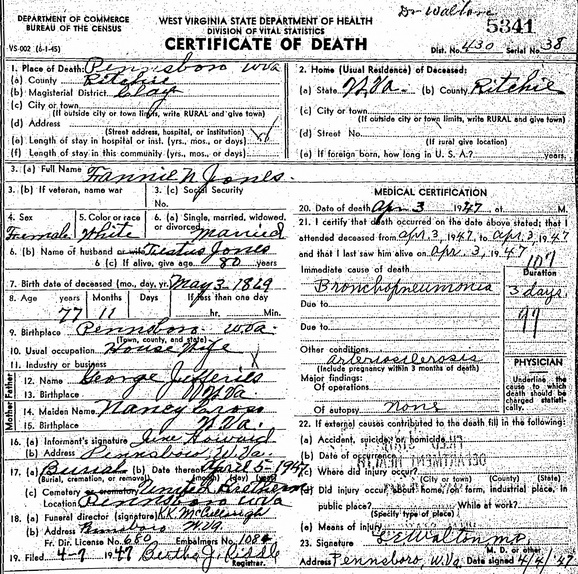 Dr Walton
DEPARTMENT OF COMMERCE
BUREAU OF THE CENSUS
WEST VIRGINIA STATE DEPARTMENT OF HEALTH
DIVISION OF VITAL STATISTICS
5341
VS-002 (6-1-45)
CERTIFICATE OF DEATH
Dist. No. 430 Serial No. 38
1. Place of Death: Pennsboro W Va
(a) County Ritchie
(b) Magisterial District Clay
(c) City or town
(If outside city or town limits, write RURAL and give town)
(d) Address
(Street address, hospital, or institution)
(e) Length of stay in hospital or inst. (yrs., mos., or days)
(f) Length of stay in this community (yrs., mos., or days)
2. Home (Usual Residence) of Deceased:
(a) State W Va. (b) County Ritchie
(c) City or town
(If outside city or town limits, write RURAL and give town)
(d) Street No.
(If rural give location)
(e) If foreign born, how long in U. S. A.? years.
3. (a) Full Name Fannie N Jones.
3. (b) If veteran, name war
3. (c) Social Security
No.
4. Sex
Female
5. Color or race
White
6. (a) Single, married, widowed,
or divorced married
6. (b) Name of husband or wife Jones
6 (c) If alive, give age 80 years
7. Birth date of deceased (mo., day, yr.) May 3 1869
8. Age years Months Days If less than one day
77 11 hr. Min.
9. Birthplace Pennsboro W Va.
(Town, county, and state)
10. Usual occupation House Wife
11. Industry or business
Mother Father
12. Name George Jefferies
13. Birthplace W Va
14. Maiden Name Nancy Cross
15. Birthplace W Va.
16. (a) Informant's signature June Howard
(b) Address Pennsboro W. Va.
17. (a) Burial (b) Date thereof April 5-1947
(Burial, cremation, or removal) (month) (day) (year)
(c) Cemetery or crematory
Location Pennsboro W Va
18. (a) Funeral director (signature) K.K. McCullough
(b) Address Pennsboro W. Va.
Fr. Dir. License No. 680 Embalmers No. 1084
19. Filed 4-7 1947 Bertha J. Riddle
Registrar.
MEDICAL CERTIFICATION
20. Date of death Apr 3 1947 at M.
21. I certify that death occurred on the date above stated; that I
attended deceased from Apr. 3, 1947, to Apr. 3, 1947
and that I last saw him alive on Apr. 3, 1947
107
Immediate cause of death
Duration
Bronchopneumonia 3 days.
Due to
Due to
Other conditions
arteriosclerosis
(Include pregnancy within 3 months of death)
Major findings:
Of operations
Of autopsy none
PHYSICIAN
Underline the cause to which death should be charged statistically.
22. If external causes contributed to the death fill in the following:
(a) Accident, suicide, or homicide
(b) Date of occurrence
(c) Where did injury occur?
(City or town) (County) (State)
(d) Did injury occur about home, on farm, industrial place, in
public place? While at work?
(Specify type of place)
(e) Means of injury
23. Signature E. E. Walton m.d.
M. D. or other
Address Pennsboro, W. Va Date signed 4/4/47